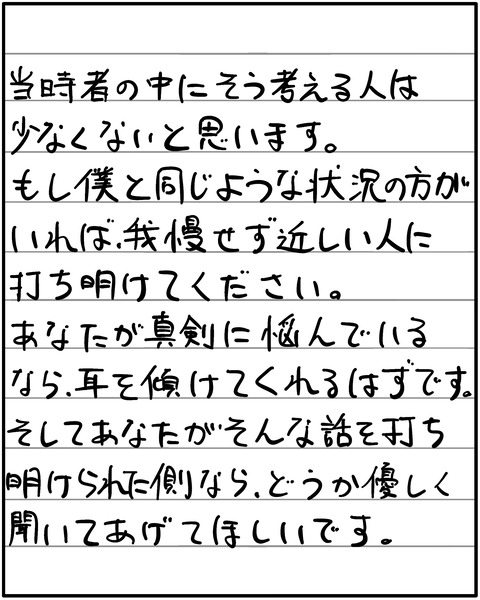 当時者の中にそう考える人は
少なくないと思います。
もし僕と同じような状況の方が
いれば、我慢せず近しい人に
打ち明けてください。
あなたが真剣に悩んでいる
なら、耳を傾けてくれるはずです。
そしてあなたがそんな話を打ち
明けられた側なら、どうか優しく
聞いてあげてほしいです。